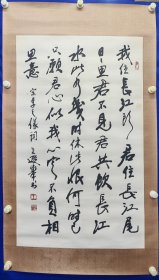 我住長江头君住長江尾
日日思君不見君共飲長江
水此水幾時休此恨何时已
只願君心似我心定不負相
思意 宋李之儀詞 王遐舉书